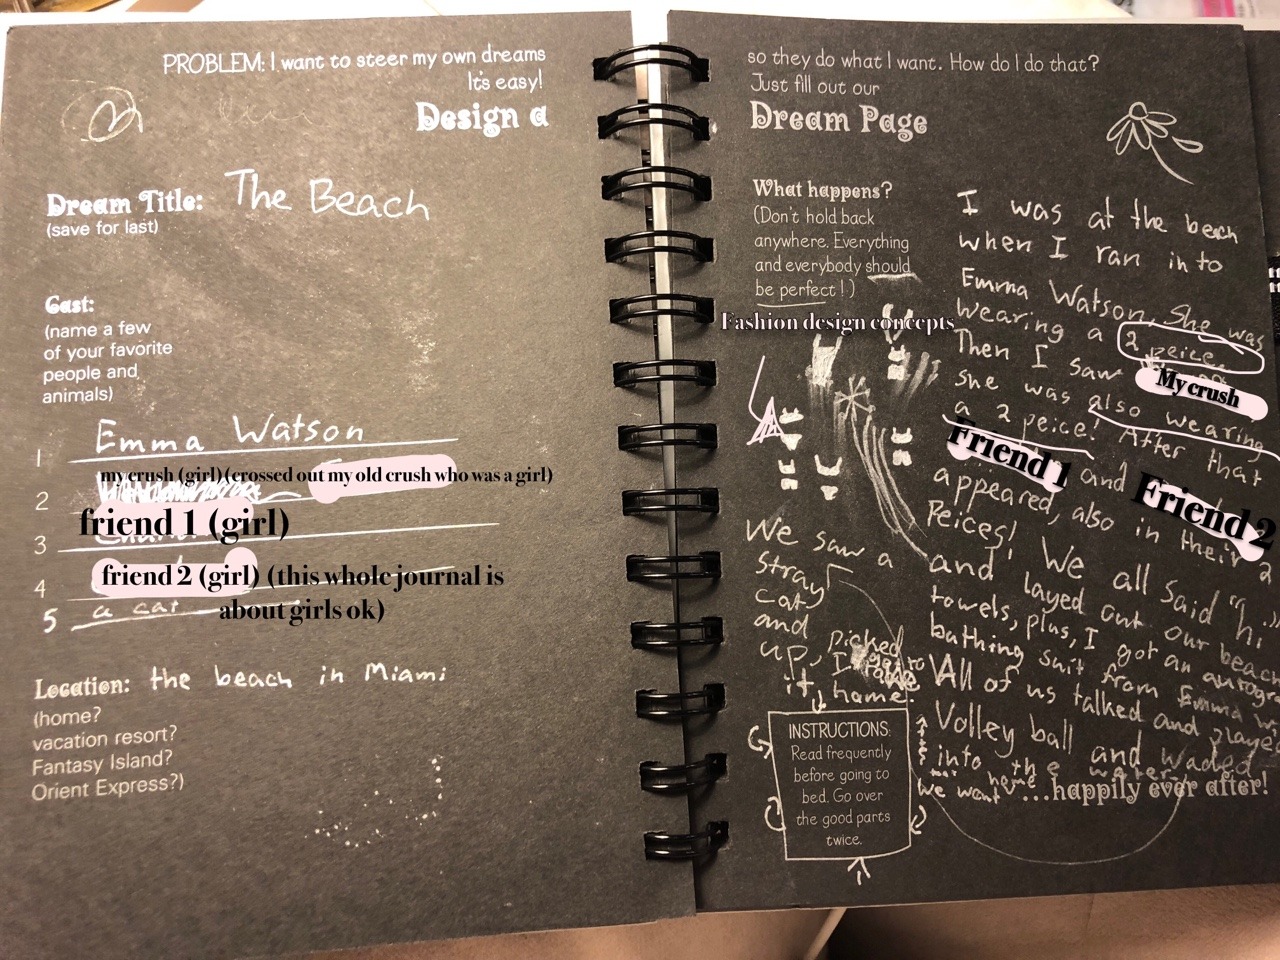 PROBLEM: I want to steer my own dreams
It's easy!
Design a
Dream Title: The Beach
(save for last)
Cast:
(name a few
of your favorite
people and
animals)
1 Emma Watson
my crush (girl)(crossed out my old crush who was a girl)
2
friend 1 (girl)
3
4 friend 2 (girl) (this whole journal is
about girls ok)
5 a cat
Location: the beach in Miami
(home?
vacation resort?
Fantasy Island?
Orient Express?)
so they do what I want. How do I do that?
Just fill out our
Dream Page
What happens?
(Don't hold back
anywhere. Everything
and everybody should
be perfect!)
Fashion design concepts
I was at the beach
when I ran into
Emma Watson. She was
wearing a 2 peice.
Then I saw My crush
she was also wearing
a 2 peice! After that
Friend 1 and Friend 2
appeared, also in their 2
Peices!
and I. We all said "hi."
layed out our beach
towels, plus, I got an
bathing suit from Emma
All of us talked and
Volley ball and waded
into the water
We want
...happily ever after!
We saw a
stray
cat
and picked
up, I
it home.
INSTRUCTIONS:
Read frequently
before going to
bed. Go over
the good parts
twice.